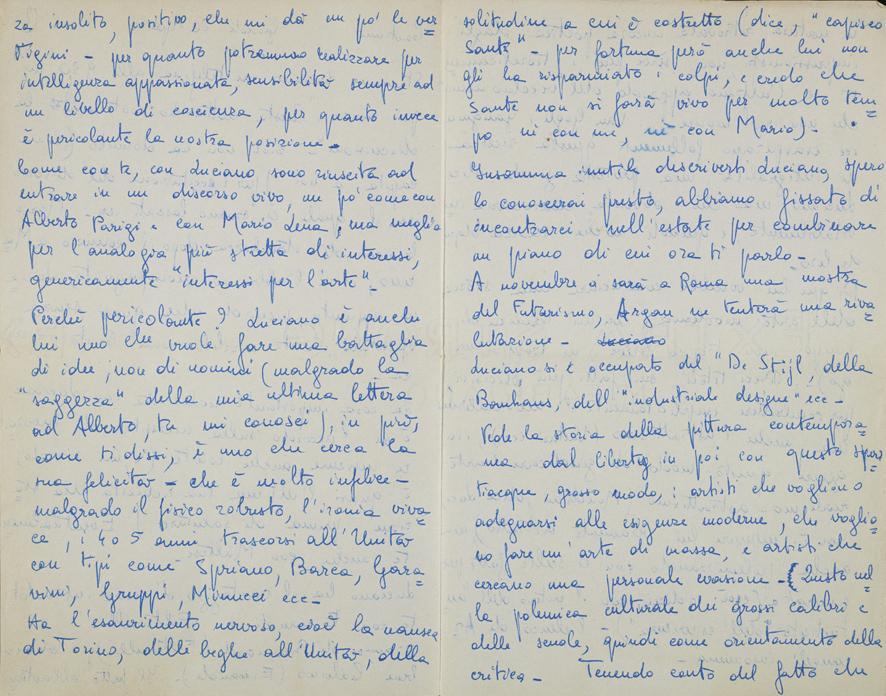 za insolito, positivo, che mi dà un po' le ver=
tigini - per quanto potremmo realizzare per
intelligenza appassionata, sensibilità sempre ad
un livello di coscienza, per quanto invece
è pericolante la nostra posizione -
Come con te, con Luciano sono riuscita ad
entrare in un discorso vivo, un pò come con
Alberto Parigi e con Mario Lena; ma meglio
per l'analogia più stretta di interessi,
genericamente "interessi per l'arte" -
Perchè pericolante? Luciano è anche
lui uno che vuole fare una battaglia
di idee, non di nomini (malgrado la
"saggezza" della mia ultima lettera
ad Alberto, tu mi conosci), in più,
come ti dissi, è uno che cerca la
sua felicità - che è molto infelice -
malgrado il fisico robusto, l'ironia viva=
ce, i 4 o 5 anni trascorsi all'Unità
con tipi come Spriano, Barca, Gara=
vini, Gruppi, Minucci ecc -
Ha l'esaurimento nervoso, cioè la nausea
di Torino, delle beghe all'Unità, della
solitudine a cui è costretto (dice, "capisco
Sante" - per fortuna però anche lui non
gli ha risparmiato i colpi, e credo che
Sante non si farà vivo per molto tem=
po nè con me, nè con Mario) -
Insomma inutile descriverti Luciano, spero
lo conoscerai presto, abbiamo fissato di
incontrarci nell'estate per combinare
un piano di cui ora ti parlo -
A novembre ci sarà a Roma una mostra
del Futurismo, Argan ne tenterà una riva=
lutazione -
Luciano si è occupato del "De Stijl, della
Bauhaus, dell'"industriale designe" ecc -
Vede la storia della pittura contempora=
nea dal liberty in poi con questo spar
tiacque, grosso modo, : artisti che vogliono
adeguarsi alle esigenze moderne, che voglio=
no fare un'arte di massa, e artisti che
cercano una personale evasione - (Questo nel=
la polemica culturale dei grossi calibri e
delle scuole, quindi come orientamento della
critica - Tenendo conto del fatto che